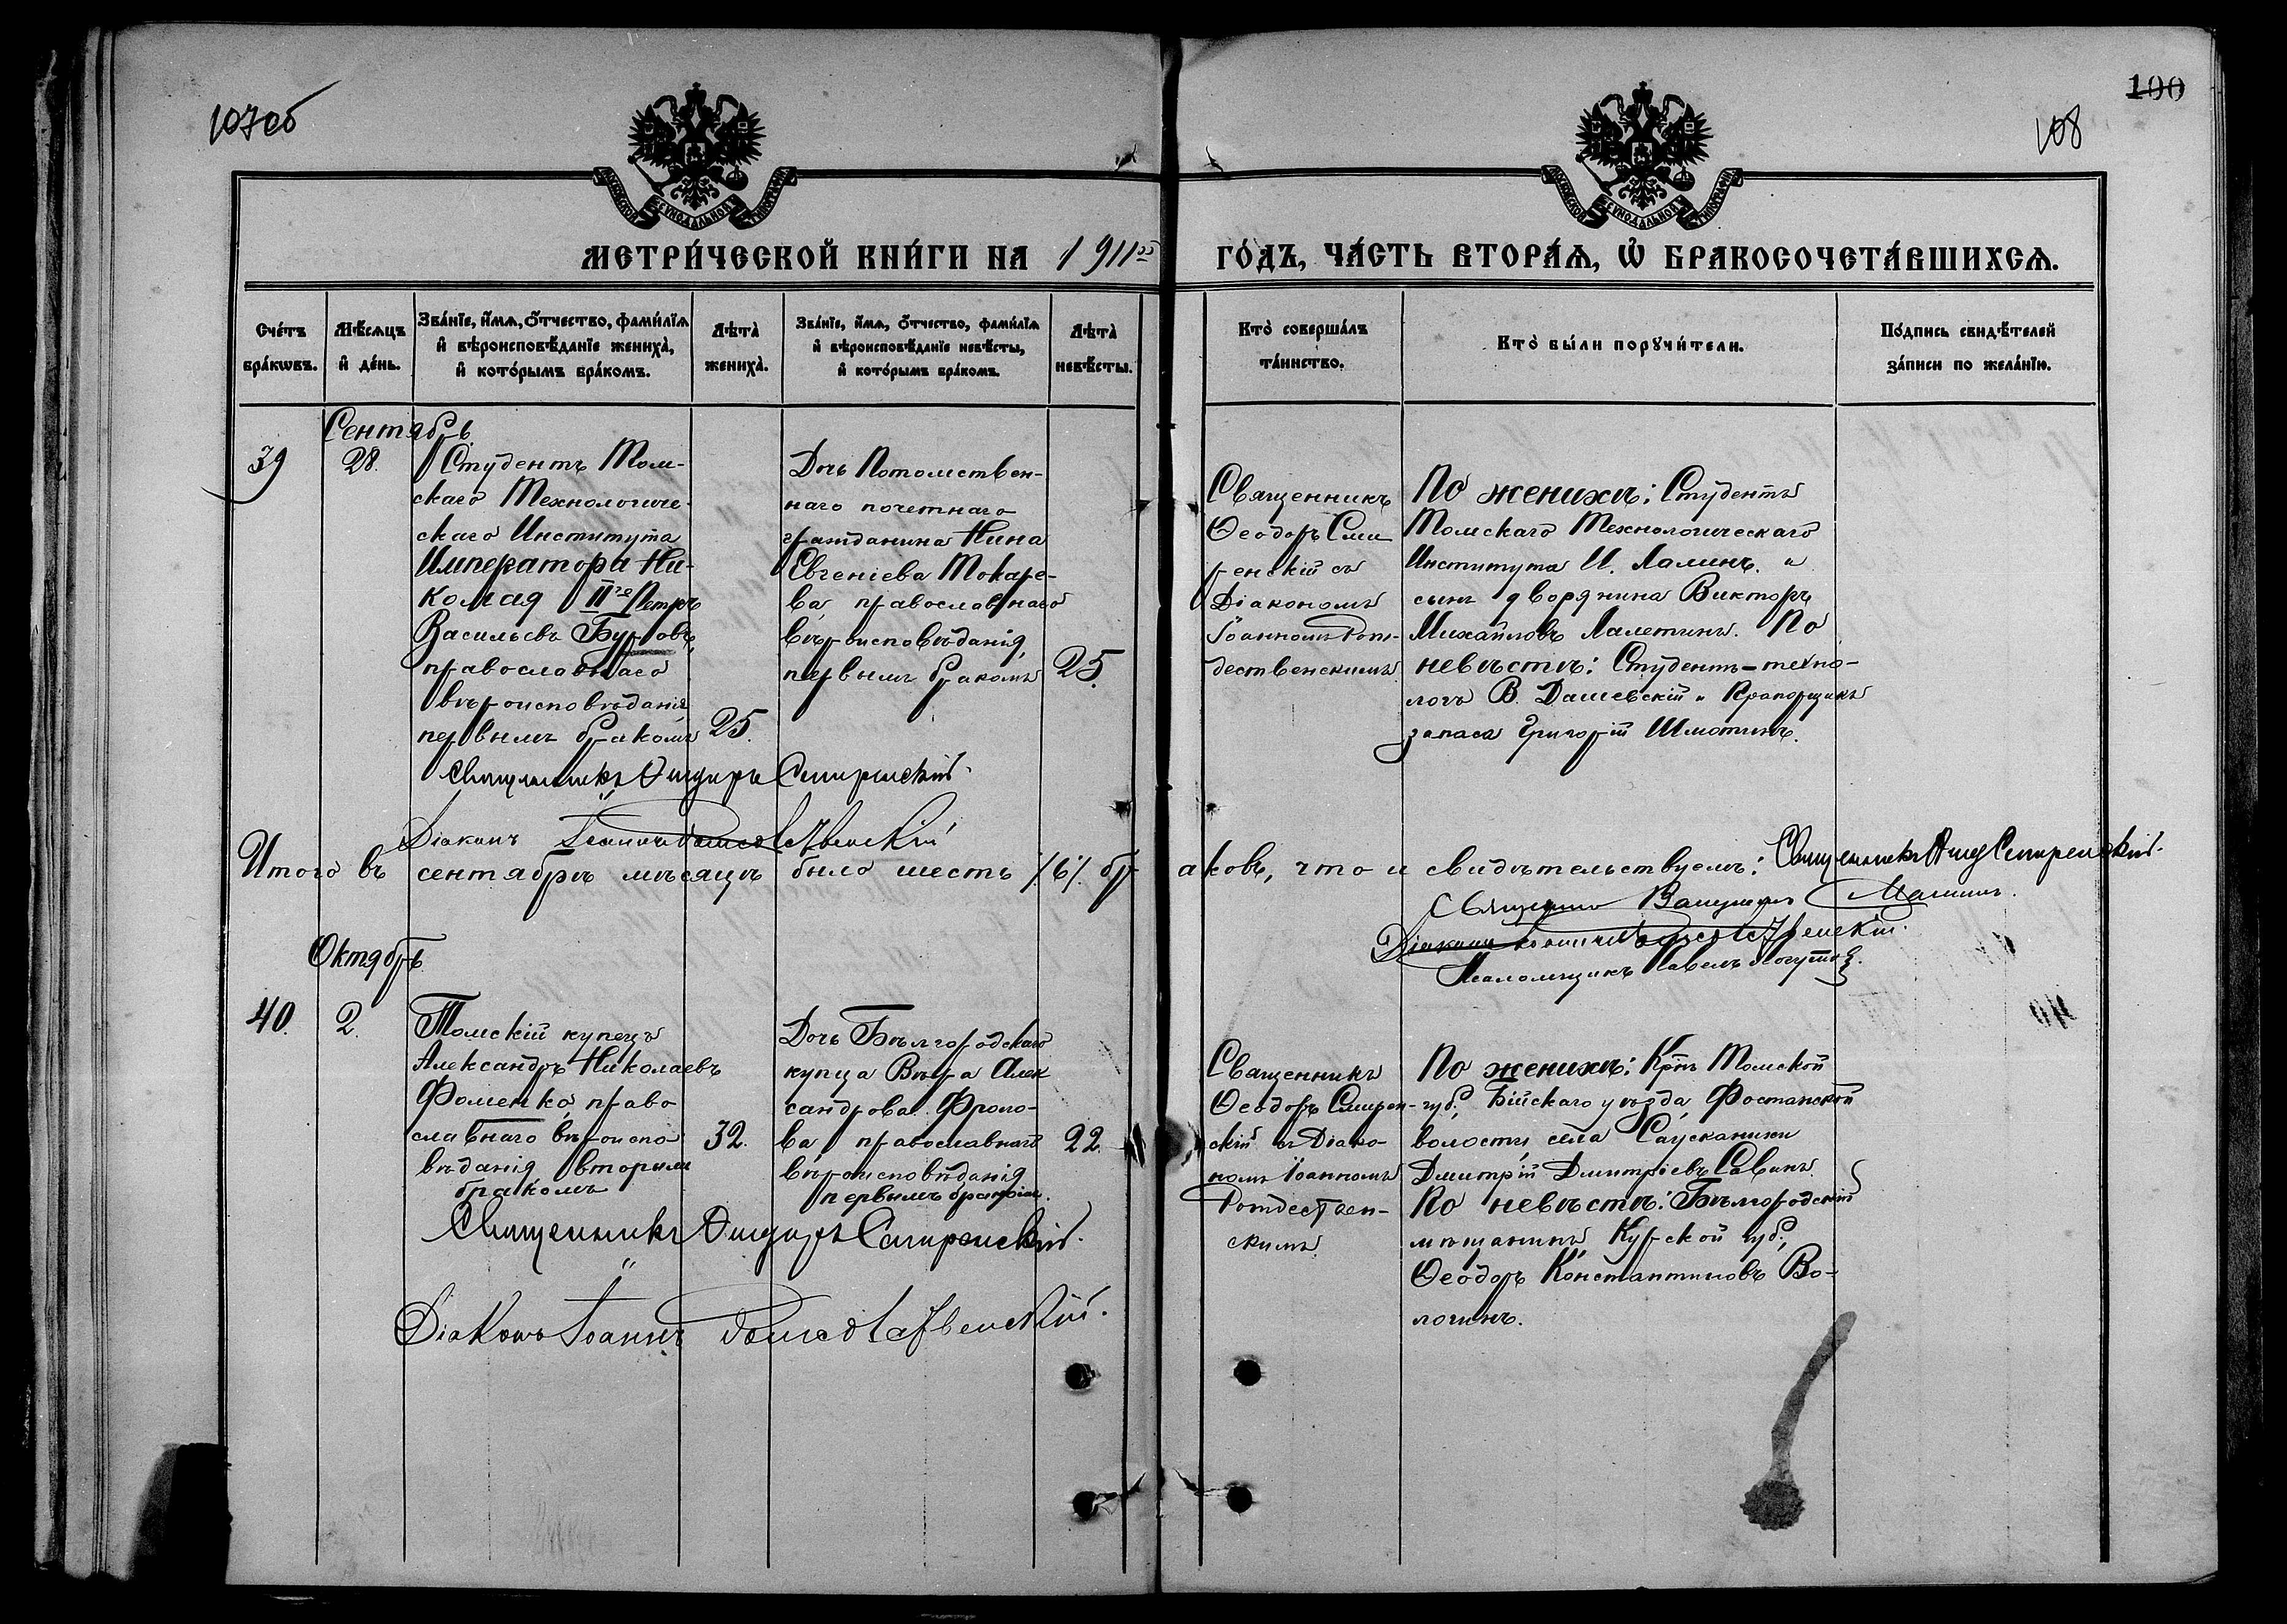 107об
100
108
МЕТРИ́ЧЕСКОЙ КНИ́ГИ НА 1911ый
ГО́ДЪ, ЧА́СТЬ ВТОРА́Ѧ, Ѽ БРАКОСОЧЕТА́ВШИХСѦ.
Сче́тъ
бра́кѡвъ.
Мѣ́сяцъ
и҆ де́нь.
Зва́нїе, и҆́мѧ, ѻ҆́тчество, фами́лїѧ
и҆ вѣроисповѣ́данїе женихà,
и҆ кото́рымъ бра́комъ.
Лѣтà
женихà.
Зва́нїе, и҆́мѧ, ѻ҆́тчество, фами́лїѧ
и҆ вѣроисповѣ́данїе невѣ́сты,
и҆ кото́рымъ бра́комъ.
Лѣтà
невѣ́сты.
Кто̀ соверша́лъ
та́инство.
Кто̀ бы́ли порꙋчи́тели.
По́дпись свидѣ́телей
за́писи по жела́нїю.
Сентябрь
39
28.
Студентъ Том-
скаго Технологиче-
скаго Института
Императора Ни-
колая IIго Петръ
Васильевъ Буровъ,
православнаго
вѣроисповѣданія
первымъ бракомъ
25.
Дочь Потомствен-
наго почетнаго
гражданина Нина
Евгеніева Токаре-
ва православнаго
вѣроисповѣданія,
первымъ бракомъ
25.
Священникъ
Ѳеодоръ Сми
ренскій съ
Діакономъ
Іоанномъ Рож-
дественскимъ
По женихѣ: Студентъ
Томскаго Технологическаго
Института И. Ламинъ. и
сынъ дворянина Викторъ
Михайловъ Лалетинъ. По
невѣстѣ: Студентъ-техно-
логъ В. Дашевскій и Прапорщикъ
запаса Григорій Шмотинъ.
Священникъ Ѳеодоръ Смиренскій.
Діаконъ Іоаннъ Рождественскій
Итого въ сентябрѣ мѣсяцѣ было шесть /6/ бр
аковъ, что и свидѣтельствуемъ: Священникъ Ѳеод Смиренскій.
Священникъ
Діаконъ Іоаннъ Рождественскій.
Псаломщикъ Павелъ
Октябрь
40.
2.
Томскій купецъ
Александръ Николаевъ
Фоменко, право
славнаго вѣроиспо
вѣданія вторымъ
бракомъ
32.
Дочь Бѣлгородскаго
купца Вѣра Алек
сандрова Фроло-
ва православнаго
вѣроисповѣданія
первымъ бракомъ.
22.
Священникъ
Ѳеодоръ Смирен-
скій съ Діако-
номъ Іоанномъ
Рождествен-
скимъ.
По женихѣ: Крнъ Томской
губ., Бійскаго уѣзда,
волости, села Саусканихи
Дмитрій Дмитріевъ Савинъ
По невѣстѣ: Бѣлгородскій
мѣщанинъ, Курской губ.,
Ѳеодоръ Константиновъ Во-
логинъ.
Священникъ Ѳеодоръ Смиренскій.
Діаконъ Іоаннъ Рождественскій.